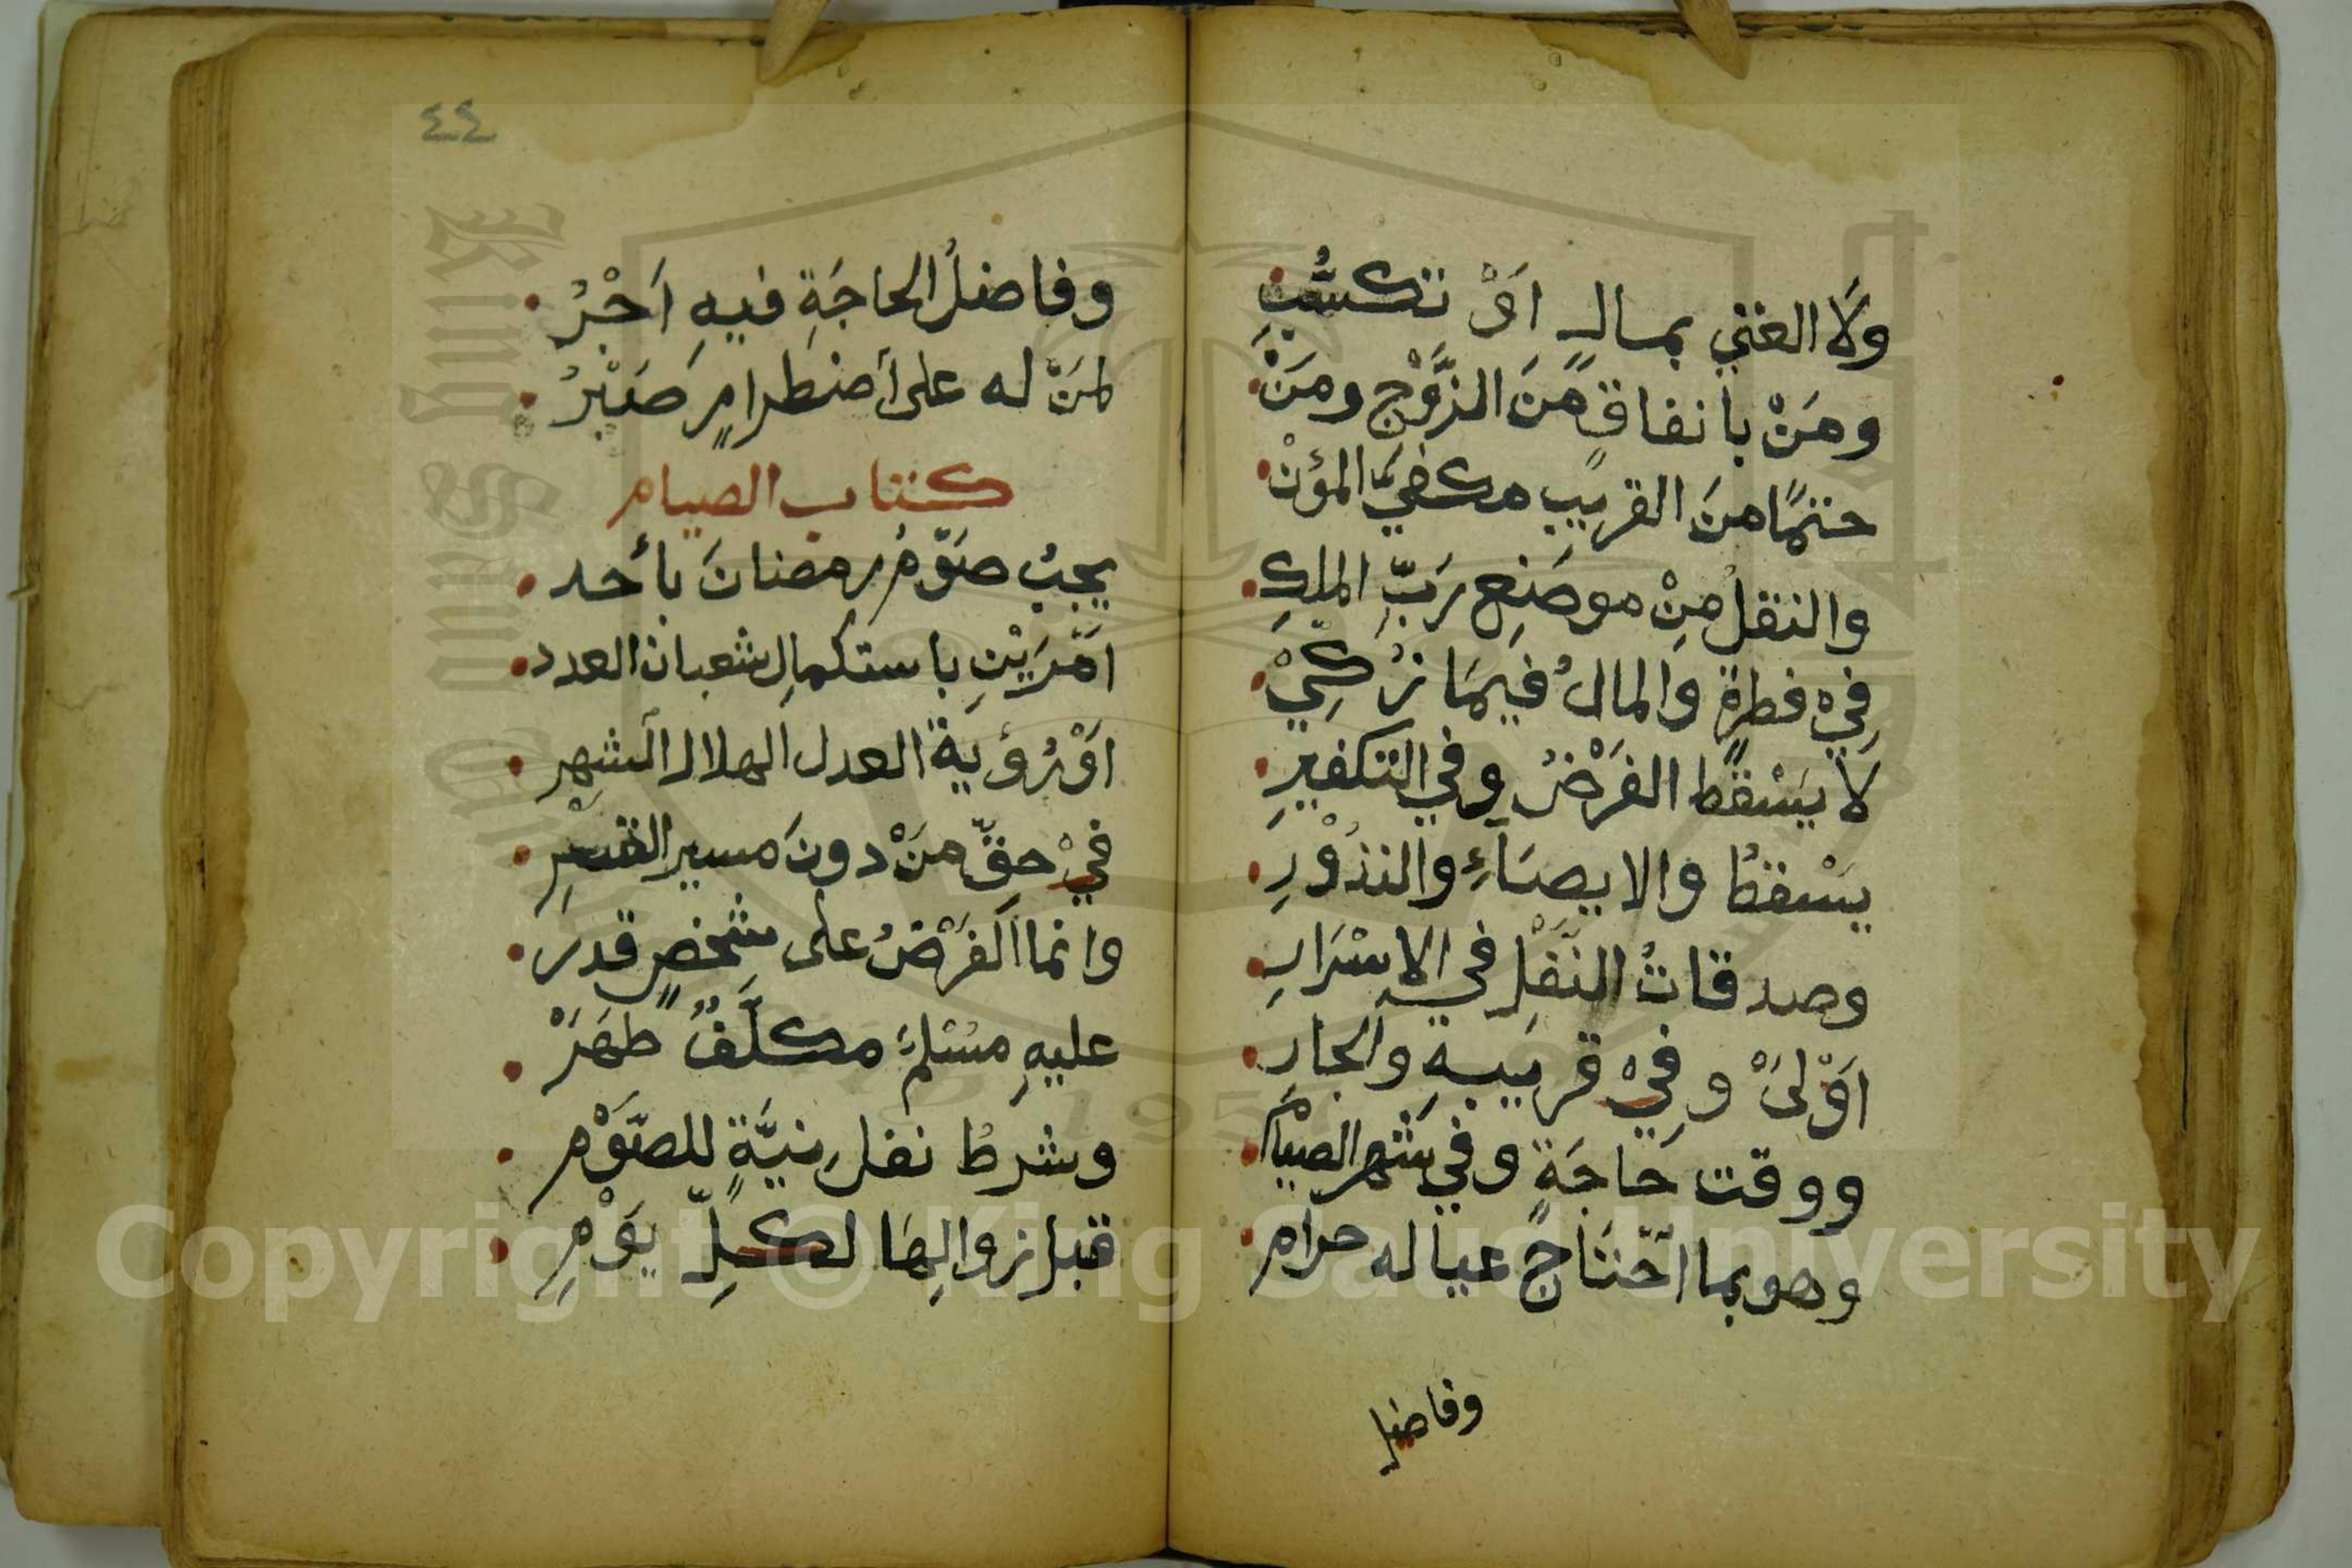 ولا الغني بمالٍ اَوْ تكسُّبِ
ومَنْ بانفاقٍ مَنَ الزَّوْج ومَنْ
حتمًا منَ القريبِ مكفيَّ المؤنْ
والنقلُ مِنْ موضَعِ رَبِّ الملكِ
فِيْ فطرةٍ والمالُ فيمَا زُكِيْ
لا يَسْقطُ الفَرْضُ وفي التكفيرِ
يسْقطُ والايصَاءِ والنذوْرِ
وصدقاتُ النّفْلِ في الاسْرَارِ
اَوْلىْ وفِيْ قريبِهِ والجارِ
ووقت حَاجَةٍ وفي شهرِ الصيامْ
وهو بما احْتَاجَ عياله حرَام
وفاضل
٤٤
وفاضلُ الحاجَةِ فيهِ اَجْرُ
لمَنْ له على أضطرامٍ صَبْرُ
كتاب الصيام
يجبُ صَوْمُ رمضانَ بأحد
اَمْرَيْنِ باستكمالِ شعبان العدد
اَوْ رُؤيةُ العدل الهلال الشهر
فيْ حقِّ مَنْ دونَ مسير القصْرِ
وانما الفَرْضُ على شخصٍ قدر
عليهِ مسْلِمٌ مكلَّفٌ طهَرْ
وشرطُ نفلٍ نيَّةٍ للصَّوْم
قبل زوالِهَا لكلِّ يَوْمِ